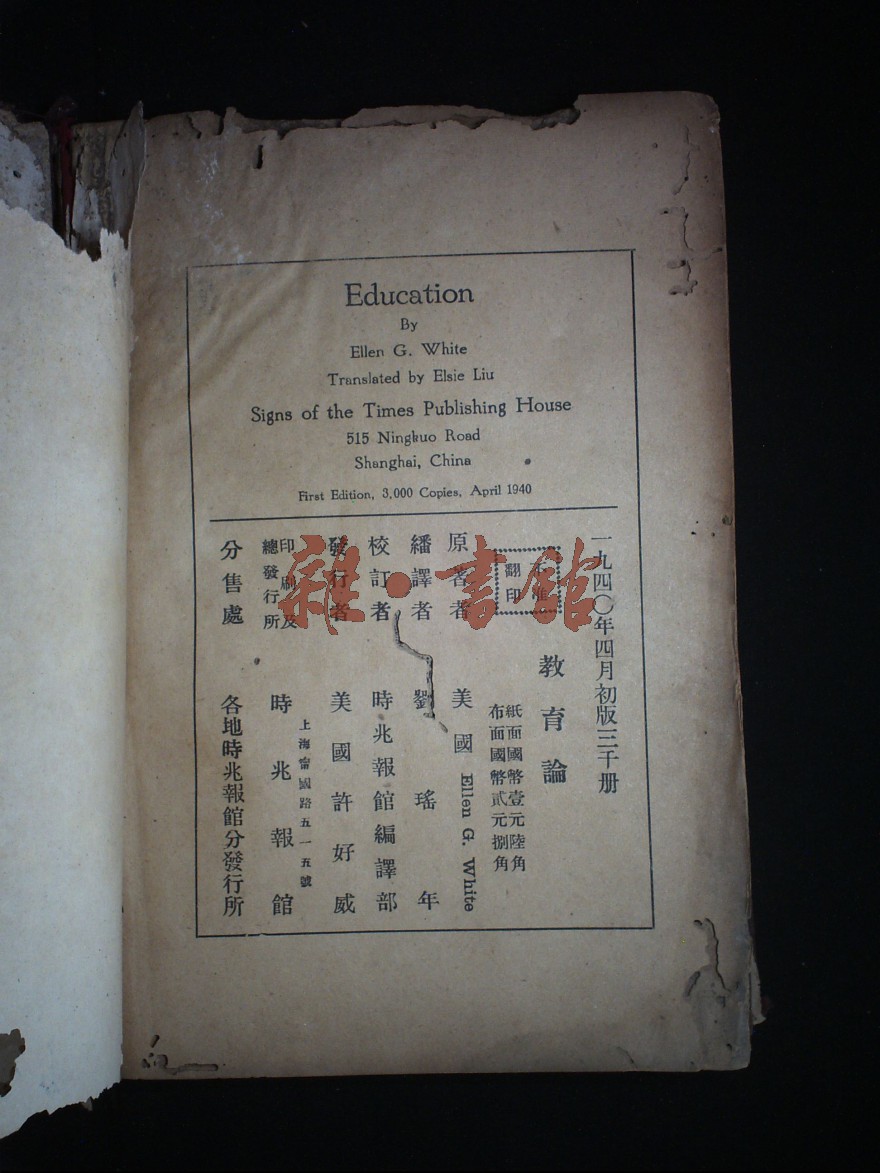 Education
By
Ellen G. White
Translated by Elsie Liu
Signs of the Times Publishing House
515 Ningkuo Road
Shanghai, China
First Edition, 3,000 Copies, April 1940
一九四〇年四月初版三千册
教育論
不准
翻印
紙面國幣壹元陸角
布面國幣貳元捌角
原著者 美國 Ellen G. White
繙譯者 劉瑤年
校訂者 時兆報館編譯部
發行者 美國許好威
上海甯國路五一五號
印刷及
總發行所 時兆報館
分售處 各地時兆報館分發行所
雜·書館